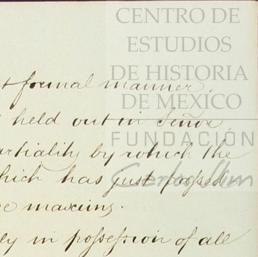 CENTRO DE
ESTUDIOS
DE HISTORIA
DE MEXICO
FUNDACIÓN
Carlos Slim
formal manner.
held out in Señor
partiality by which the
which has just passed
maxims.
in possession of all